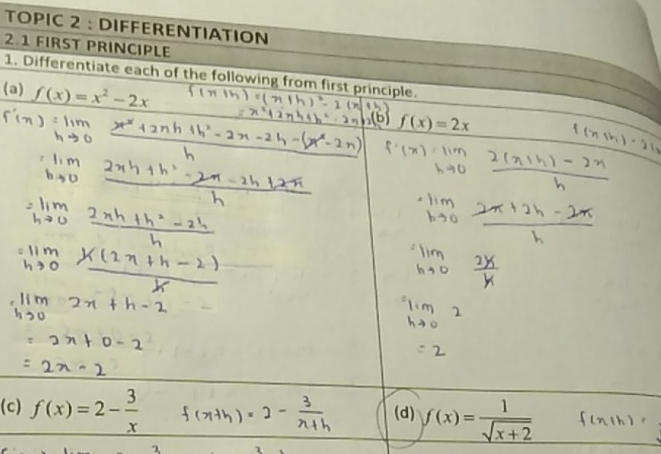 TOPIC 2 : DIFFERENTIATION
2.1 FIRST PRINCIPLE
1. Differentiate each of the following from first principle.
(a) f(x) = x² − 2x
f(x+h) = (x+h)² − 2(x+h)
= x² + 2xh + h² − 2x − 2h
f'(x) = lim h→0 (x² + 2xh + h² − 2x − 2h − (x² − 2x)) / h
= lim h→0 (2xh + h² − 2x − 2h + 2x) / h
= lim h→0 (2xh + h² − 2h) / h
= lim h→0 h(2x + h − 2) / h
= lim h→0 2x + h − 2
= 2x + 0 − 2
= 2x − 2
(b) f(x) = 2x
f(x+h) = 2(x
f'(x) = lim h→0 (2(x+h) − 2x) / h
= lim h→0 (2x + 2h − 2x) / h
= lim h→0 2h / h
= lim h→0 2
= 2
(c) f(x) = 2 − 3/x
f(x+h) = 2 − 3/(x+h)
(d) f(x) = 1/√(x+2)
f(x+h) =